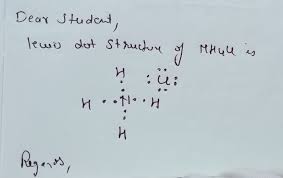 Dear Student,
lewis dot structure of NH4Cl is
H
:Cl:
H N H
H
Regards,